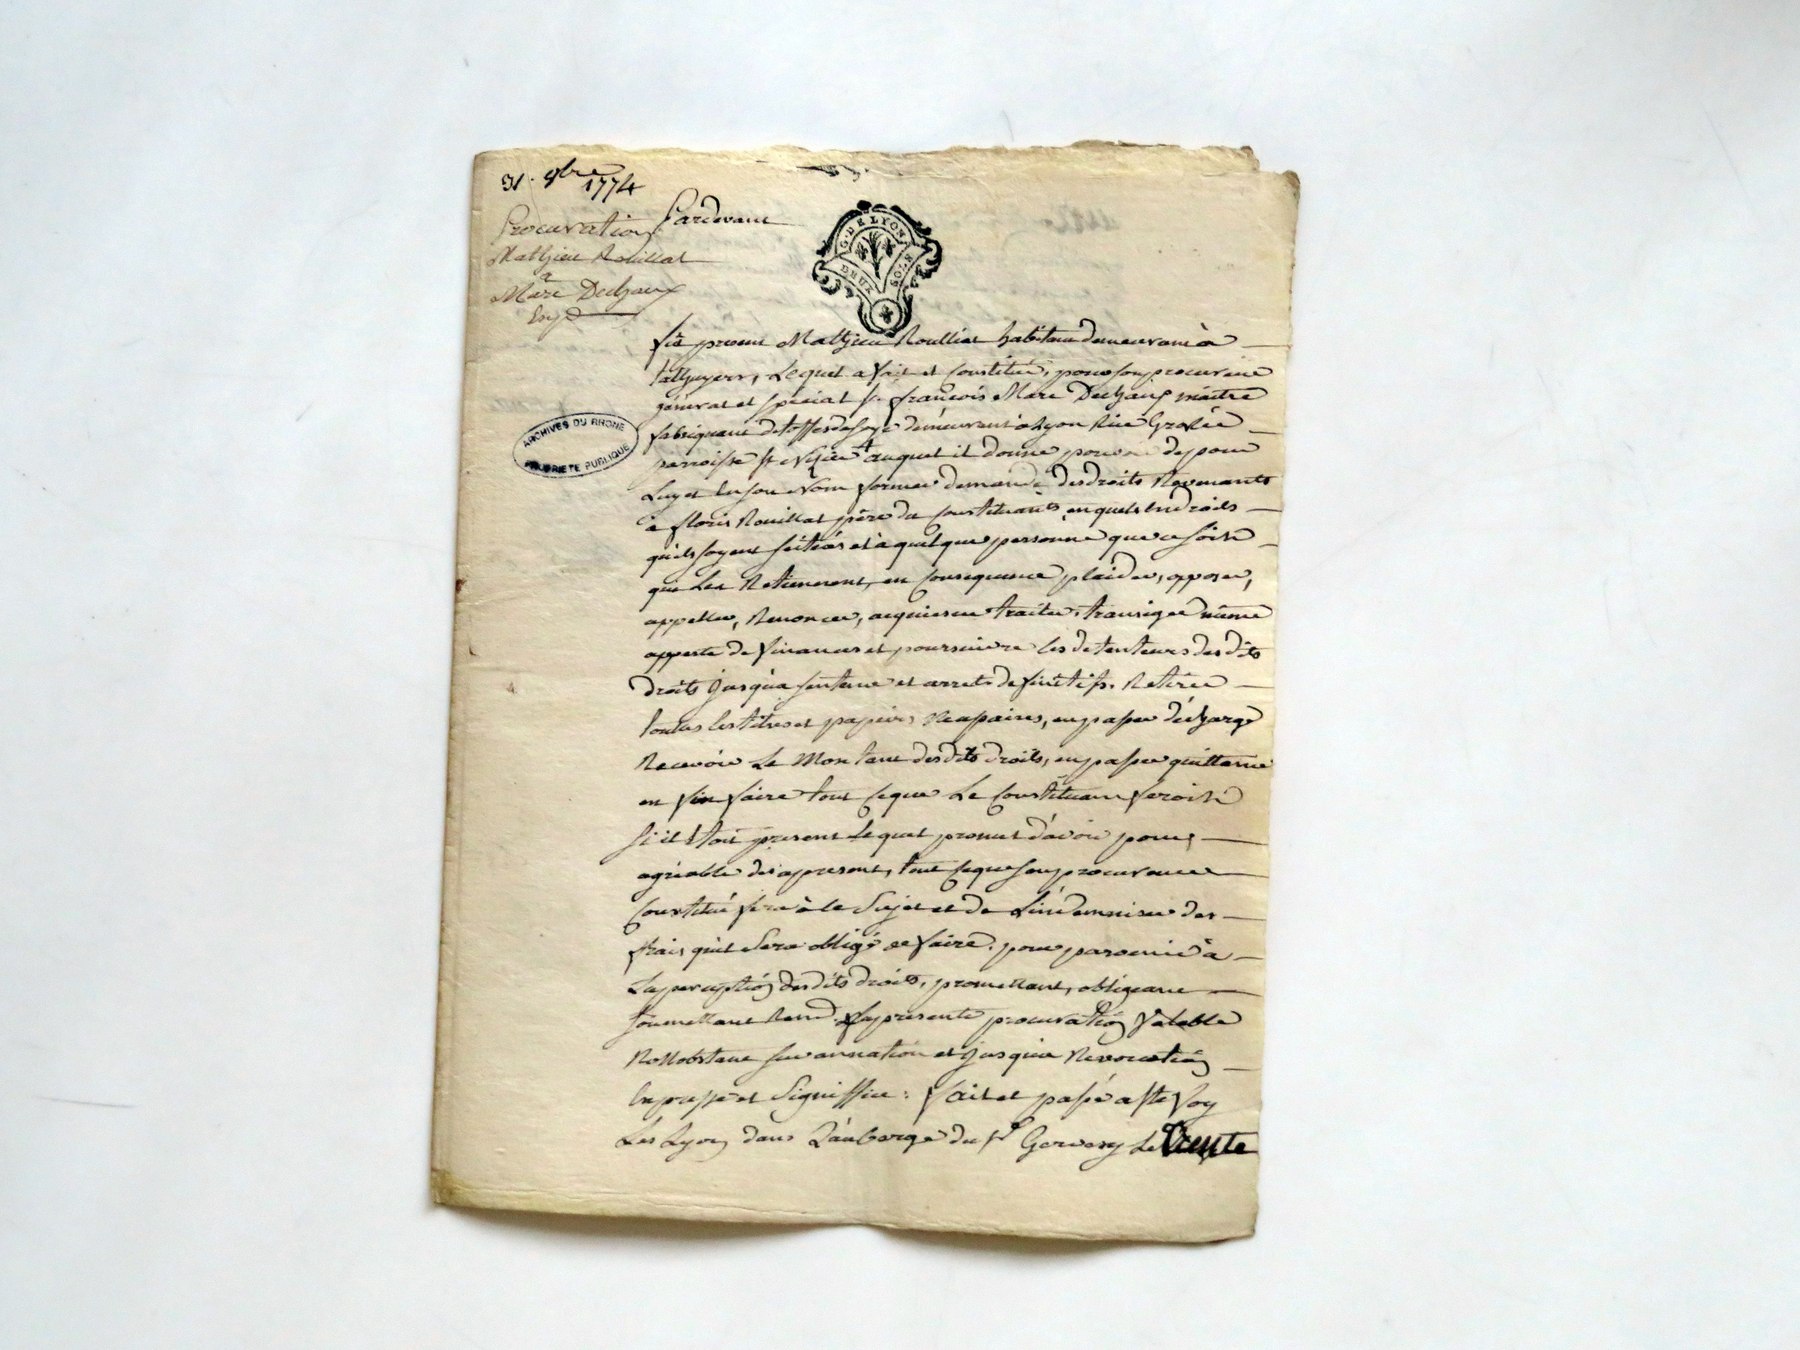 31. 8bre 1774
Procuration
Mathieu Rouillat
a
Marc Dechaux
Exp.
Pardevant
G. DE LYON
DEUX SOLS
ARCHIVES DU RHONE
PROPRIETE PUBLIQUE
fut présent Mathieu Roulliat habitant demeurant à
Lequel a fait et Constitué, pour son procureur
général et special Sr. françois Marc Dechaux maitre
fabriquant détoffes de soye demeurant à Lyon Rüe Grolée
parroisse St Nizier auquel il donne pouvoir de pour
Luy et En son Nom former demande des droits Revenants
a floris Rouillat père du Constituant, en quels Endroits
quils soyent scitués et à quelque personne que ce soit
qui Les Retiennent, en Consequence plaider, opposer,
appeller, Renoncer, acquiescer traiter, transiger même
apperte de finances et poursuivre les detenteurs des dits
droits jusqu'a sentence et arrets definitifs. Retirer
toutes les titres et papiers Necessaires, en passer décharge
Recevoir Le Montant des dits droits, en passer quittance
en fin faire tout Ceque Le Constituant feroit
Si il Etoit présent Lequel promet d'avoir pour
agréable des apresent, tout Ceque son procureur
Constitué fera à le Sujet et de L'indemniser des
frais quil Sera obligé de faire. pour parvenir à
La perception des dits droits, promettant, obligeant
soumettant Rend. La présente procuration Valable
Nonobstant surannation et jusqu'a Revocation
Expresse et Signiffiee: fait et passé a Ste foy
Les Lyon dans L'auberge du Sr Gervesy Le Trente